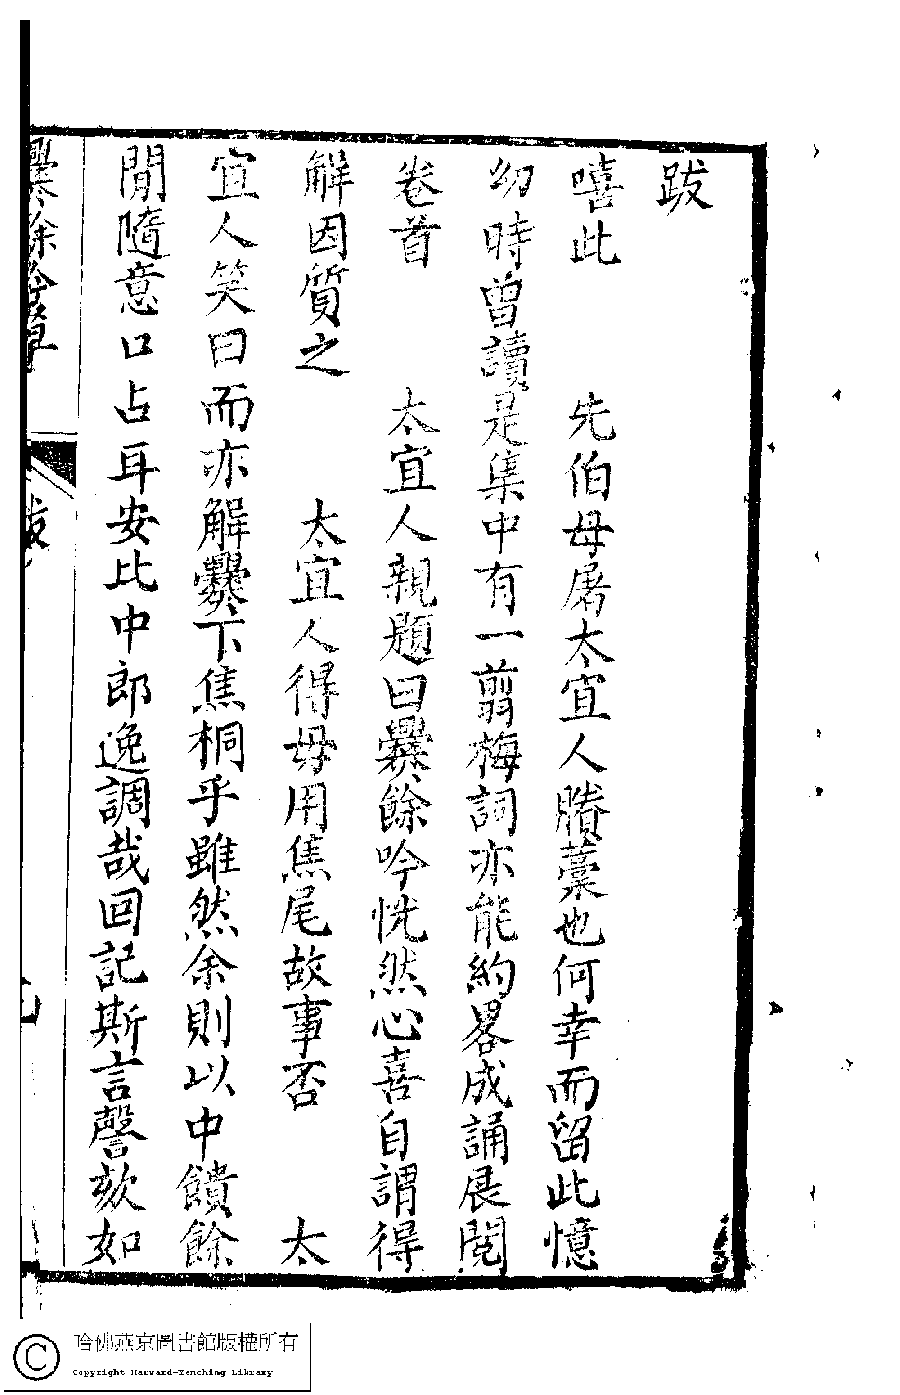 跋
嘻此　先伯母屠太宜人賸藁也何幸而留此憶
幼時曾讀是集中有一剪梅詞亦能約畧成誦展閱
卷首　太宜人親題曰爨餘吟恍然心喜自謂得
解因質之　太宜人得毋用焦尾故事否　太
宜人笑曰而亦解爨下焦桐乎雖然余則以中饋餘
閒隨意口占耳安比中郎逸調哉回記斯言謦欬如
爨餘吟草
跋
哈佛燕京圖書館版權所有
Copyright Harvard-Yenching Library